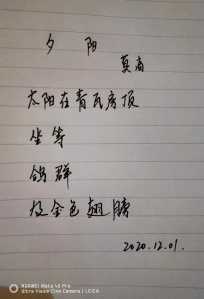 夕阳
莫南
太阳在青瓦房顶
坐等
鸽群
及金色翅膀
2020.12.01.
HUAWEI Mate 40 Pro
Ultra Vision Cine Camera | LEICA